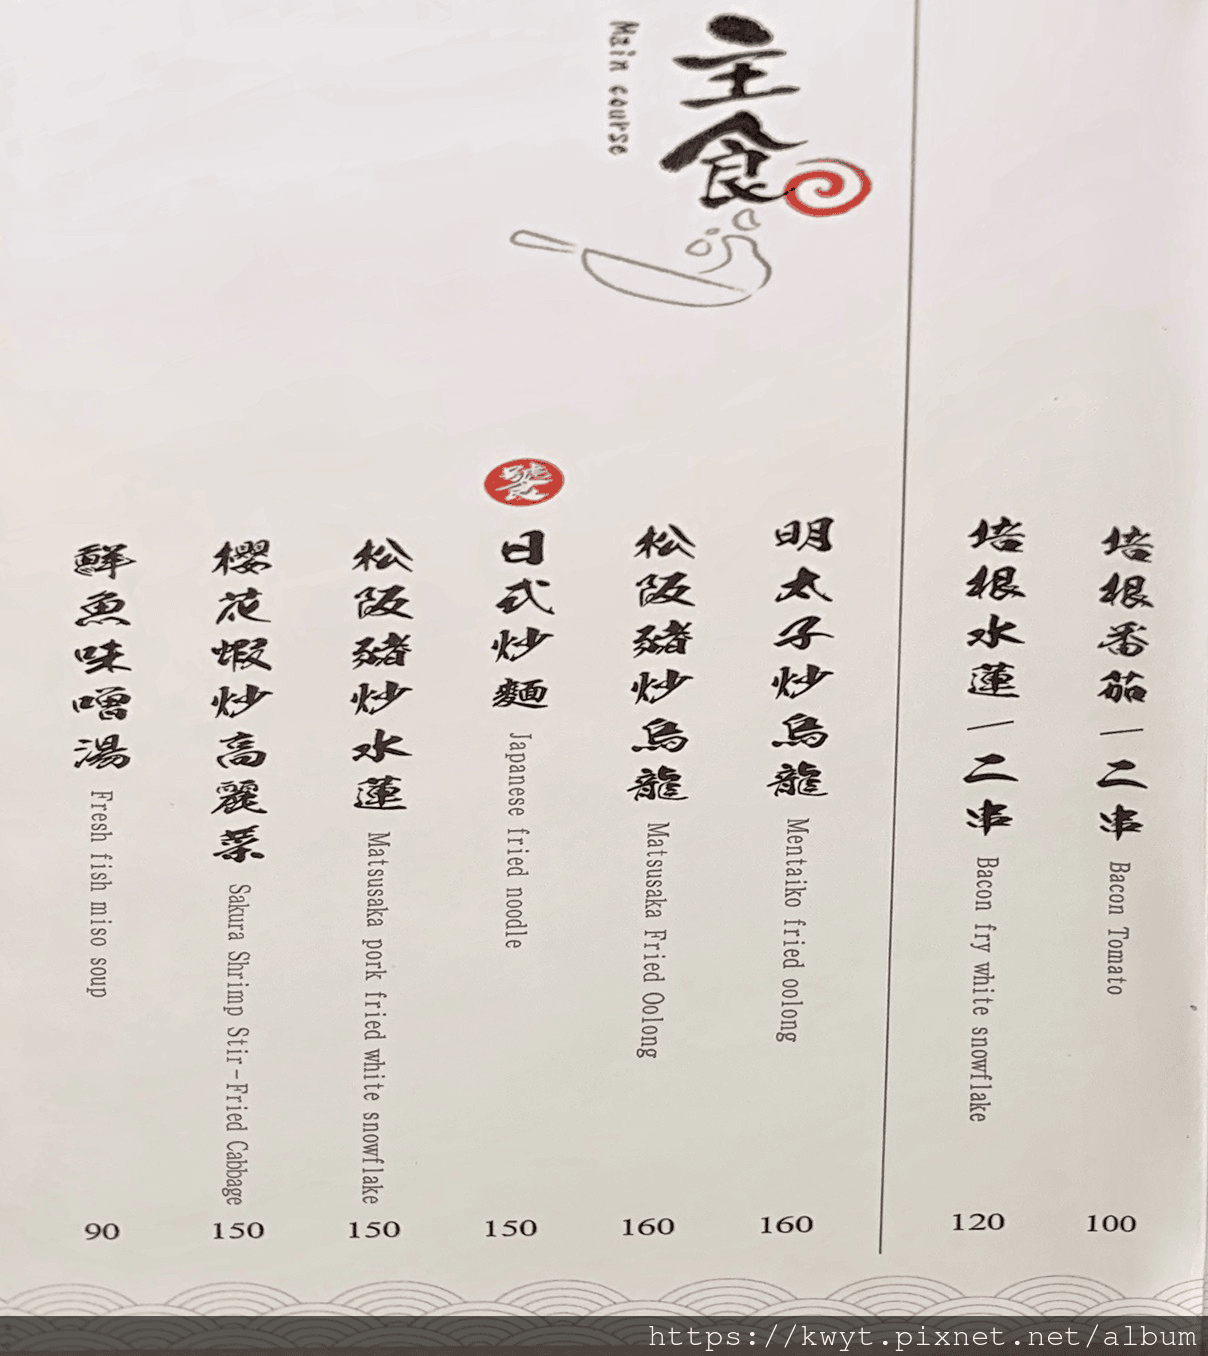 培根番茄|二串 Bacon Tomato 100
培根水蓮|二串 Bacon fry white snowflake 120
主食
Main course
明太子炒烏龍 Mentaiko fried oolong 160
松阪豬炒烏龍 Matsusaka Fried Oolong 160
日式炒麵 Japanese fried noodle 150
松阪豬炒水蓮 Matsusaka pork fried white snowflake 150
櫻花蝦炒高麗菜 Sakura Shrimp Stir-Fried Cabbage 150
鮮魚味噌湯 Fresh fish miso soup 90
https://kwyt.pixnet.net/album